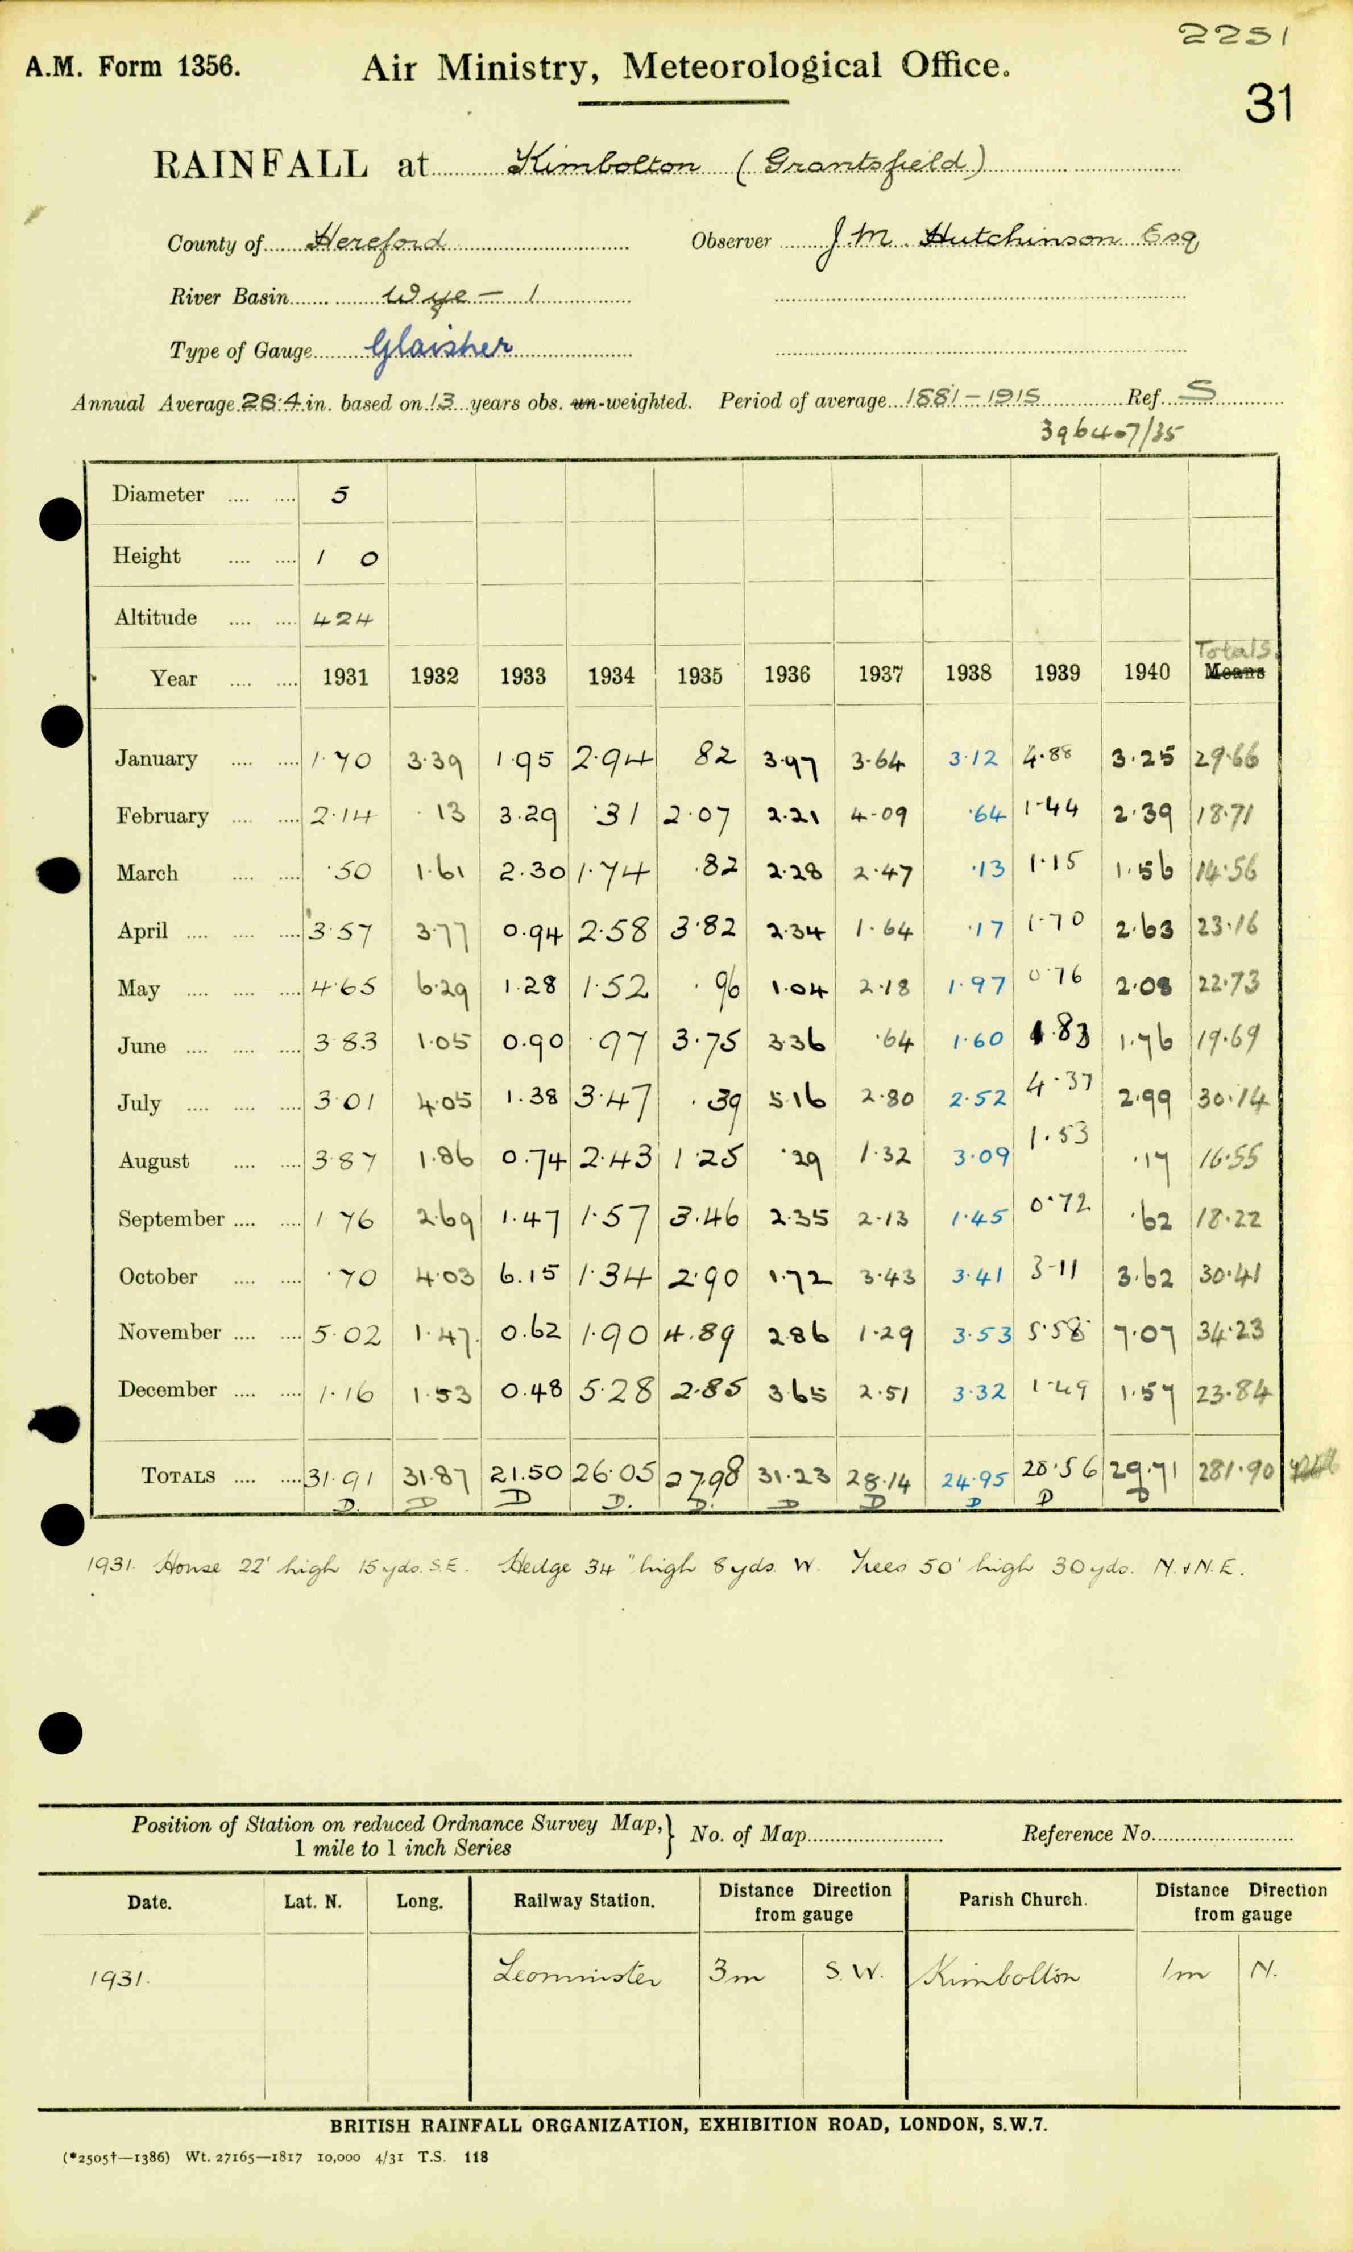 2251
A.M. Form 1356. Air Ministry, Meteorological Office.
31
RAINFALL at Kimbolton (Grantsfield)
County of Hereford Observer J.M. Hutchinson Esq
River Basin Wye - 1
Type of Gauge Glaisher
Annual Average 28.4 in. based on 13 years obs. un-weighted. Period of average 1881-1915 Ref. S
396407/35
Diameter 5
Height 1 0
Altitude 424
Totals
Year 1931 1932 1933 1934 1935 1936 1937 1938 1939 1940 Means
January 1.70 3.39 1.95 2.94 82 3.97 3.64 3.12 4.88 3.25 29.66
February 2.14 .13 3.29 .31 2.07 2.21 4.09 .64 1.44 2.39 18.71
March .50 1.61 2.30 1.74 .82 2.28 2.47 .13 1.15 1.56 14.56
April 3.57 3.77 0.94 2.58 3.82 2.34 1.64 .17 1.70 2.63 23.16
May 4.65 6.29 1.28 1.52 .96 1.04 2.18 1.97 0.76 2.08 22.73
June 3.83 1.05 0.90 .97 3.75 3.36 .64 1.60 1.83 1.76 19.69
July 3.01 4.05 1.38 3.47 .39 5.16 2.80 2.52 4.37 2.99 30.14
August 3.87 1.86 0.74 2.43 1.25 .29 1.32 3.09 1.53 .17 16.55
September 1.76 2.69 1.47 1.57 3.46 2.35 2.13 1.45 0.72 .62 18.22
October .70 4.03 6.15 1.34 2.90 1.72 3.43 3.41 3.11 3.62 30.41
November 5.02 1.47 0.62 1.90 4.89 2.86 1.29 3.53 5.58 7.07 34.23
December 1.16 1.53 0.48 5.28 2.85 3.65 2.51 3.32 1.49 1.57 23.84
TOTALS 31.91 31.87 21.50 26.05 27.98 31.23 28.14 24.95 28.56 29.71 281.90
D. D D D. D. D D D D D
1931. House 22' high 15 yds. S.E. Hedge 34" high 8 yds. W. Trees 50' high 30 yds. N. & N.E.
Position of Station on reduced Ordnance Survey Map, 1 mile to 1 inch Series } No. of Map Reference No.
Date. Lat. N. Long. Railway Station. Distance Direction from gauge Parish Church. Distance Direction from gauge
1931. Leominster 3m S.W. Kimbolton 1m N.
BRITISH RAINFALL ORGANIZATION, EXHIBITION ROAD, LONDON, S.W.7.
(*2505†—1386) Wt. 27165—1817 10,000 4/31 T.S. 118